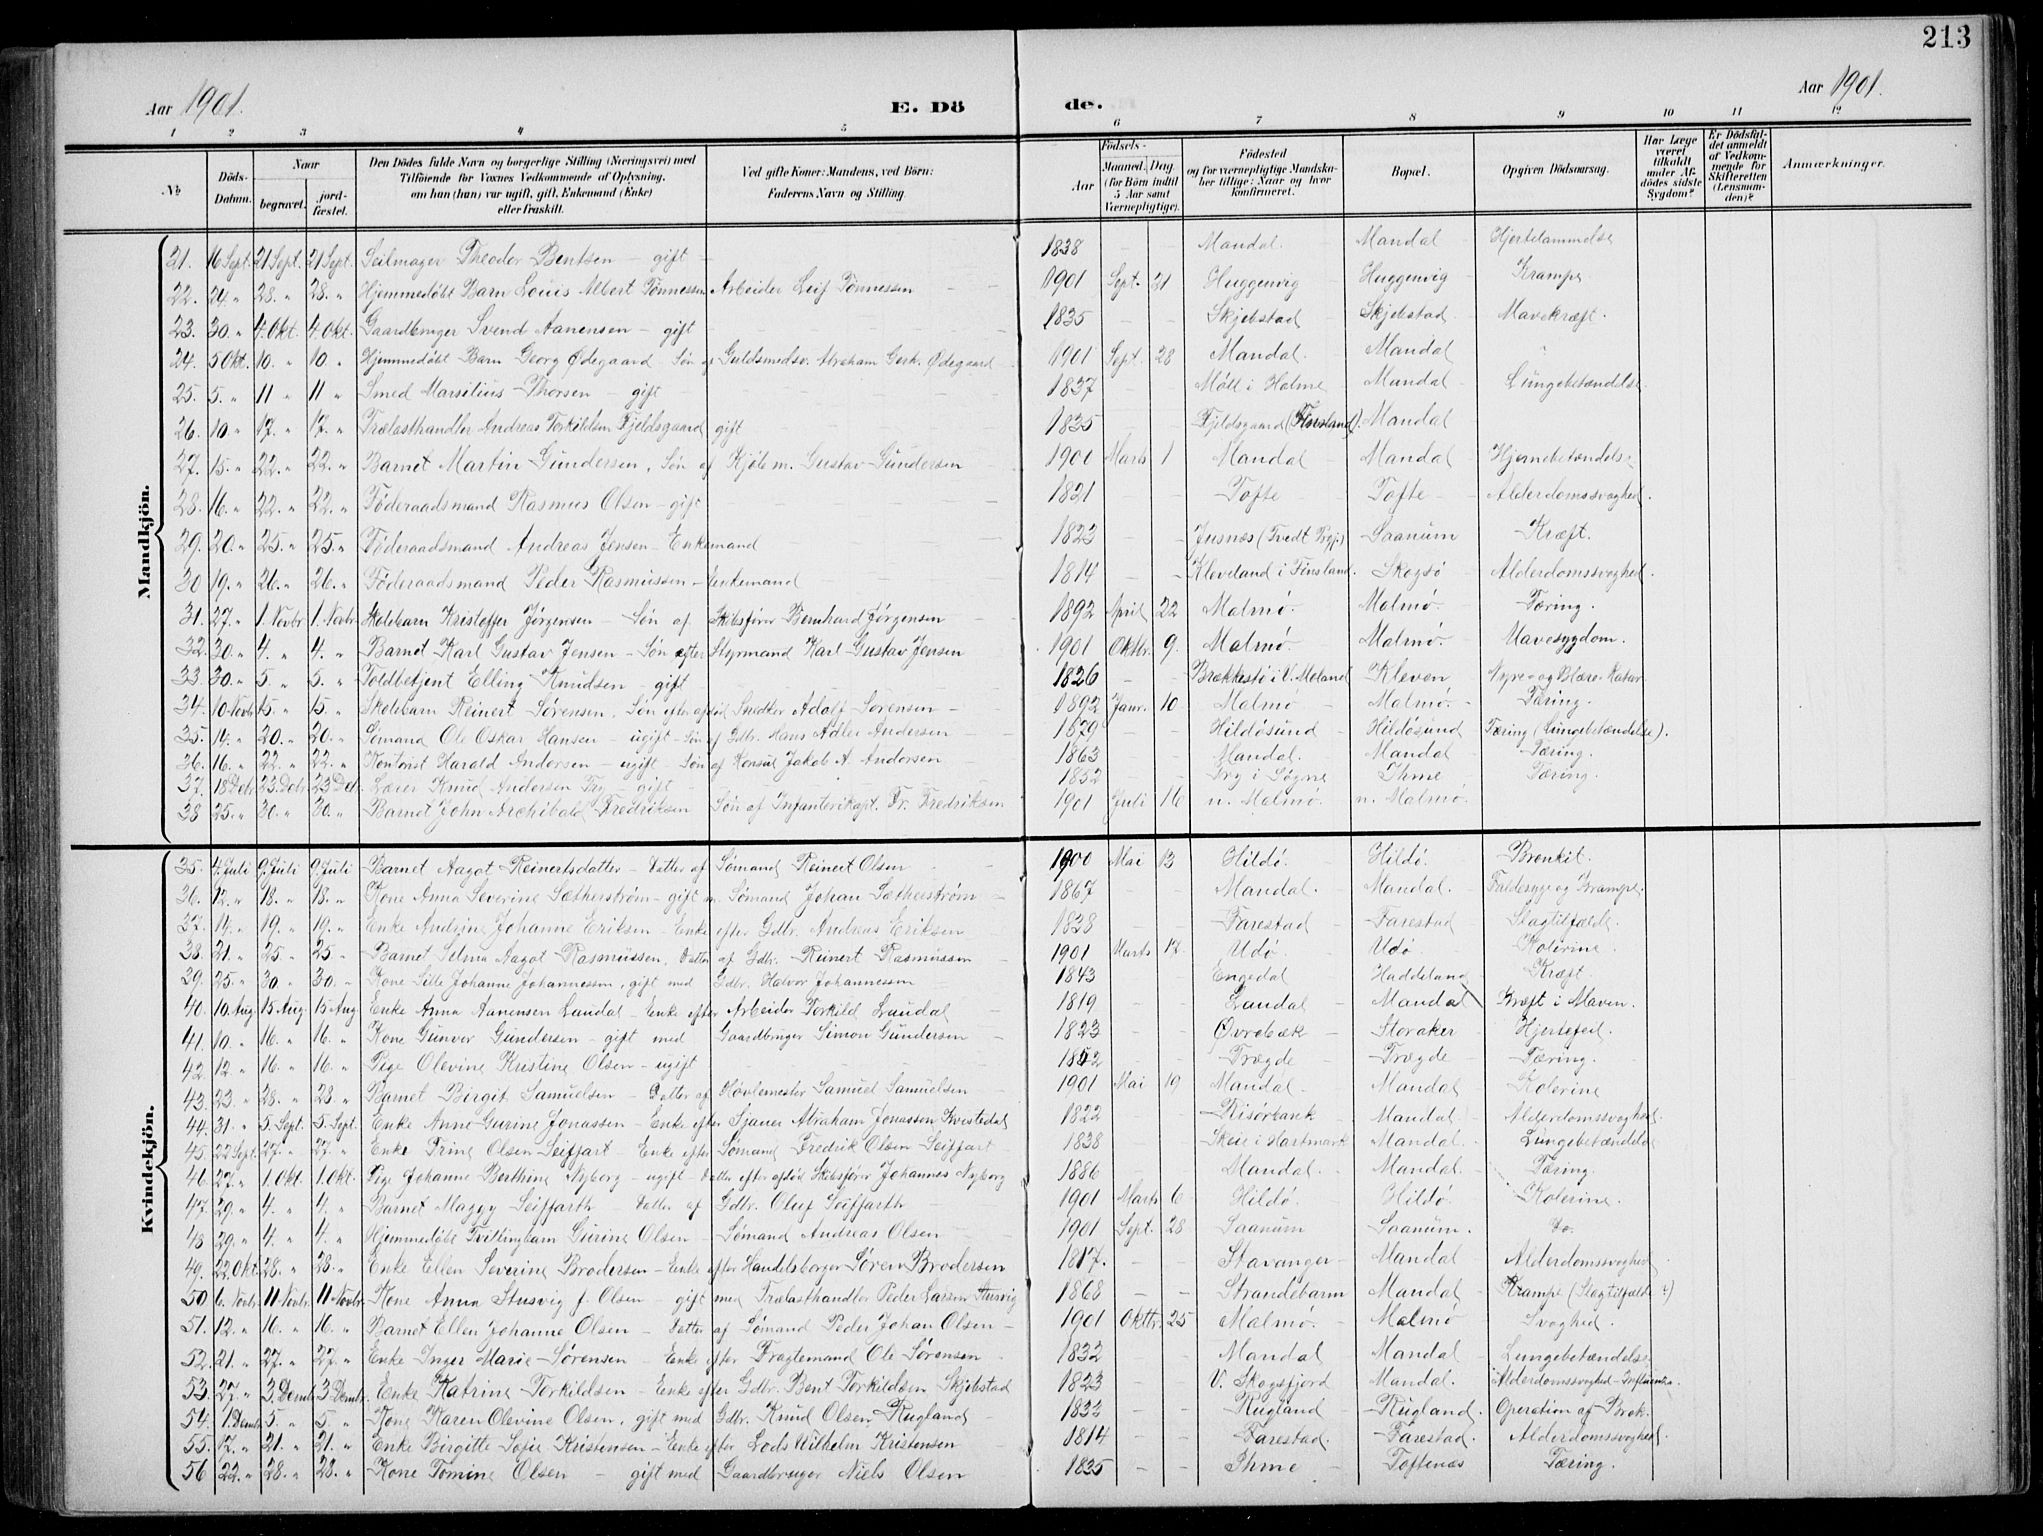 213
Aar 1901. E. Dö de. Aar 1901.
1 2 3 4 5 6 7 8 9 10 11 12
No Döds-Datum. Naar begravet. jord-fæstet. Den Dödes fulde Navn og borgerlige Stilling (Næringsvei) med Tilföiende for Voxnes Vedkommende af Oplysning, om han (hun) var ugift, gift, Enkemand (Enke) eller fraskilt. Ved gifte Koner: Mandens, ved Börn: Faderens Navn og Stilling. Aar Födsels- Maaned. Dag. (for Börn indtil 5 Aar samt Værnepligtige). Födested og for værnepligtige Mandskaber tillige: Naar og hvor konfirmeret. Bopæl. Opgiven Dödsaarsag. Har Læge været tilkaldt under Afdödes sidste Sygdom? Er Dödsfaldet anmeldt af Vedkommende for Skifteretten (Lensmanden)? Anmærkninger.
Mandkjön.
21. 16 Sept. 21 Sept. 21 Sept. Seilmager Theodor Bentsen – gift – 1838 – – Mandal. Mandal Hjertelammelse
22. 24 " 28. " 28. " Hjemmedøbt Barn Louis Albert Tønnessen Arbeider Leif Tønnessen 1901 Sept. 21 Huggenvig Huggenvig Krampe
23. 30. " 4. Okt. 4. Okt. Gaardbruger Svend Aanensen – gift 1835 – – Skjebstad Skjebstad Mavekræft.
24. 5 Okt. 10. " 10 " Hjemmedøbt Barn Georg Ødegaard – Søn af Guldsmedsv. Abraham Gerh. Ødegaard 1901 Sept. 28 Mandal. Mandal "
25. 5. " 11 " 11 " Smed Marsilius Thorsen – gift 1837 Møll i Holme Mandal Lungebetændelse
26. 10 " 17. " 17. " Trælasthandler Andreas Torkildsen Fjeldsgaard gift 1835 Fjeldsgaard (Finsland). Mandal
27. 15. " 22. " 22. " Barnet Martin Gundersen, Søn af Kjølem. Gustav Gundersen 1900 Marts 1 Mandal Mandal Hjernebetændelse
28. 16. " 22. " 22. " Føderaadsmand Rasmus Olsen – gift 1821 – – Tofte Tofte Alderdomssvaghed.
29. 20. " 25. " 25. " Føderaadsmand Andreas Jensen – Enkemand 1823 – – Jusnæs (Tvedt Pgj.) Saanum Kræft.
30 19. " 26. " 26. " Føderaadsmand Peder Rasmussen – Enkemand 1814 – – Kleveland i Finsland. Skogsø Alderdomssvaghed.
31. 27. " 1. Novbr 1. Novbr. Skolebarn Kristoffer Jørgensen – Søn af Skibsfører Bernhard Jørgensen 1892 April 22 Malmø. Malmø. Tæring.
32. 30. " 4. " 4. " Barnet Karl Gustav Jensen – Søn efter Styrmand Karl Gustav Jensen 1901 Oktbr. 9. Malmø. Malmø. Mavesygdom.
33. 30. " 5. " 5. " Toldbetjent Elling Knudsen – gift 1826 – – Brækkestø i V. Moland Kleven Nyre- og Blære-Katar
34. 10 Novbr 15. " 15. " Skolebarn Reinert Sørensen, Søn efter afdød Snedker Adolf Sørensen – 1892 Janr. 10. Malmø Malmø. Tæring.
35. 14. " 20. " 20. " Sømand Ole Oskar Hansen – ugift Søn af Gdbr. Hans Adler Andersen 1879 – – Hildøsund Hildøsund Tæring (Lungebetændelse).
36. 16. " 22. " 22. " Kontorist Harald Andersen – ugift Søn af Konsul Jakob A. Andersen 1863 Mandal. Mandal Tæring.
37. 18 Debr 23. Debr 23 Debr. Lærer Knud Andersen Try – gift 1852 Try i Søgne Ihme Tæring.
38 25. " 30. " 30. " Barnet John Archibald Fredriksen Søn af Infanterikapt. Fr. Fredriksen 1901 Juli 16 n. Malmø. n. Malmø.
Kvindekjön.
35. 4. Juli 9. Juli 9. Juli Barnet Aagot Reinertsdatter – Datter af Sømand Reinert Olsen 1900 Mai 13 Hildø. Hildø. Bronkit.
36. 12. " 18. " 18. " Kone Anna Severine Sætherstrøm – gift m. Sømand Johan Sætherstrøm – 1867 – – Mandal. Mandal. Faldesyge og Krampe.
37. 14. " 19. " 19. " Enke Andrine Johanne Eriksen – Enke efter Gdbr. Andreas Eriksen 1838 Farestad Farestad Slagtilfælde.
38. 21. " 25. " 25. " Barnet Selma Aagot Rasmussen. Datter af Gdbr. Reinert Rasmussen 1901 Marts 17. Udø. Udø Kolerine.
39. 25. " 30. " 30. " Kone Sille Johanne Johannessen, gift med Gdbr. Halvor Johannessen 1843 Engedal Haddeland Kræft.
40. 10. Aug 15 Aug. 15 Aug Enke Anna Aanensen Laudal – Enke efter Arbeider Torkild Laudal 1819 Laudal Mandal Kræft i Maven.
41. 10. " 16. " 16. " Kone Gunvor Gundersen – gift med Gaardbruger Simon Gundersen 1823 Øvrebæk Storaker Hjertefeil.
42. 12 " 16. " 16. " Pige Olevine Kristine Olsen – ugift – 1852 – – Trægde Trægde Tæring.
43. 23. " 28. " 28. " Barnet Birgit Samuelsen – Datter af Høvlemester Samuel Samuelsen 1901 Mai 19 Mandal Mandal Kolerine
44. 31. " 5. Sept. 5. Sept. Enke Anne Gurine Jonassen – Enke efter Sjauer Abraham Jonassen 1822 Risørbank Mandal Alderdomssvaghed.
45. 22 Sept. 27. " 27. " Enke Trine Olsen Seiffart – Enke efter Sømand Fredrik Olsen Seiffart 1838 Skeie i Hartmark Mandal. Lungebetændelse
46 27. " 1. Okt. 1. Okt. Pige Johanne Berthine Nyborg – ugift – Datter efter afdød Skibsfører Johannes Nyborg 1886 – Mandal. Mandal. Tæring.
47. 29. " 4. " 4. " Barnet Maggy Seiffarth – Datter af Gdbr. Oluf Seiffarth 1901 Marts 6. Hildø. Hildø. Kolerine.
48 29. " 4. " 4. " Hjemmedøbt Tvillingbarn Gurine Olsen – Sømand Andreas Olsen 1901 Sept. 28. Saanum Saanum. Do.
49. 22. Okt. 28. " 28. " Enke Ellen Severine Brodersen – Enke efter Handelsborger Søren Brodersen 1817. – – Stavanger Mandal Alderdomssvaghed
50 6. Novbr. 11 Novbr. 11 Novbr. Kone Anna Stusvig f. Olsen – gift med Trælasthandler Peder Larsen Stusvig 1868 – – Strandebarm Mandal Krampe (Slagtilfælde ?)
51. 12. " 16. " 16. " Barnet Ellen Johanne Olsen – Datter af Sømand Peder Johan Olsen – 1901 Oktbr. 25 Malmø. Malmø Svaghed.
52. 21. " 27. " 27. " Enke Inger Marie Sørensen – Enke efter Fragtemand Ole Sørensen 1832 Mandal Mandal Lungebetændelse
53. 27. " 3. Dembr 3 Dembr. Enke Katrine Torkildsen – Enke efter Gdbr. Bent Torkildsen Skjebstad 1823 V. Skogsfjord Mandal. Alderdomssvaghed – Influenza.
54. 1 Dembr 5. " 5. " Kone Karen Olevine Olsen, gift med Gdbr. Knud Olsen Rugland 1832 – – Rugland Rugland. Operation af Brok.
55. 17. " 21. " 21. " Enke Birgitte Sofie Kristensen – Enke efter Lods Wilhelm Kristensen 1814 – – Farestad. Farestad. Alderdomssvaghed.
56 22. " 28. " 28. " Kone Tomine Olsen – gift med Gaardbruger Niels Olsen 1835 – – Ihme Toftenæs Tæring.